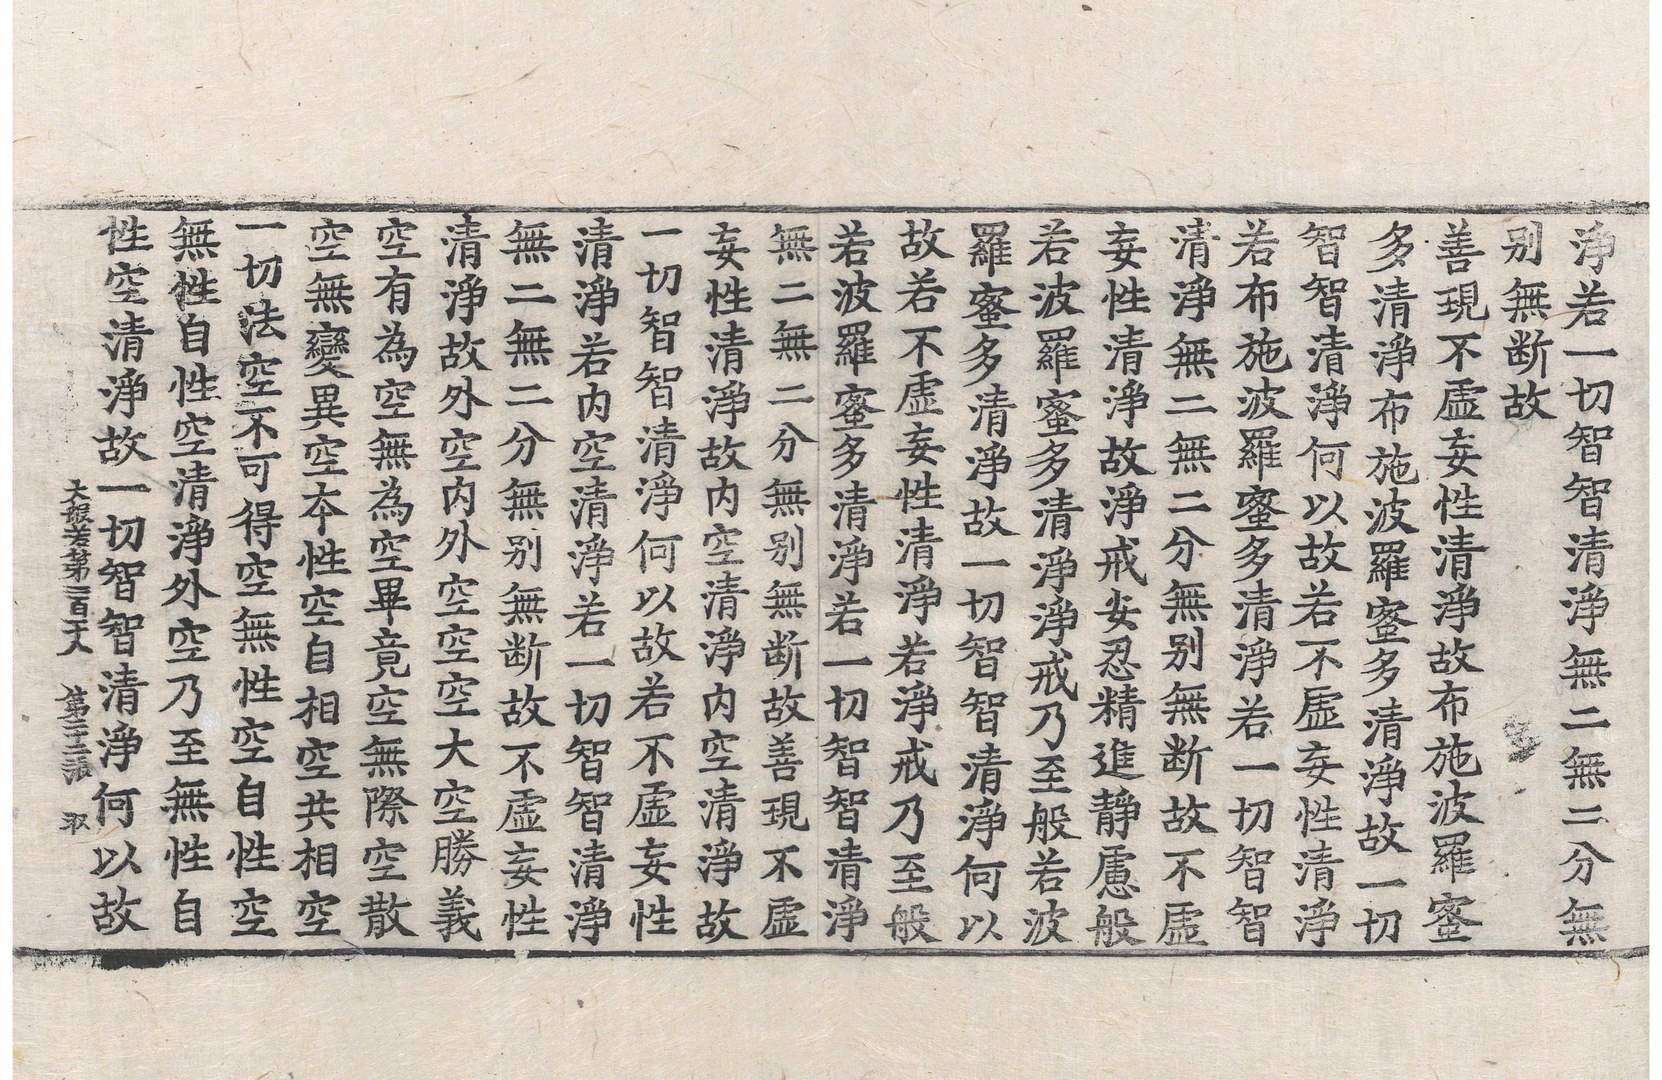 淨若一切智智清淨無二無二分無
别無断故
善現不虛妄性清淨故布施波羅蜜
多清淨布施波羅蜜多清淨故一切
智智清淨何以故若不虛妄性清淨
若布施波羅蜜多清淨若一切智智
清淨無二無二分無别無断故不虛
妄性清淨故淨戒安忍精進靜慮般
若波羅蜜多清淨淨戒乃至般若波
羅蜜多清淨故一切智智清淨何以
故若不虛妄性清淨若淨戒乃至般
若波羅蜜多清淨若一切智智清淨
無二無二分無别無断故善現不虛
妄性清淨故内空清淨内空清淨故
一切智智清淨何以故若不虛妄性
清淨若内空清淨若一切智智清淨
無二無二分無别無断故不虛妄性
清淨故外空内外空空空大空勝義
空有為空無為空畢竟空無際空散
空無變異空本性空自相空共相空
一切法空不可得空無性空自性空
無性自性空清淨外空乃至無性自
性空清淨故一切智智清淨何以故
大般若第